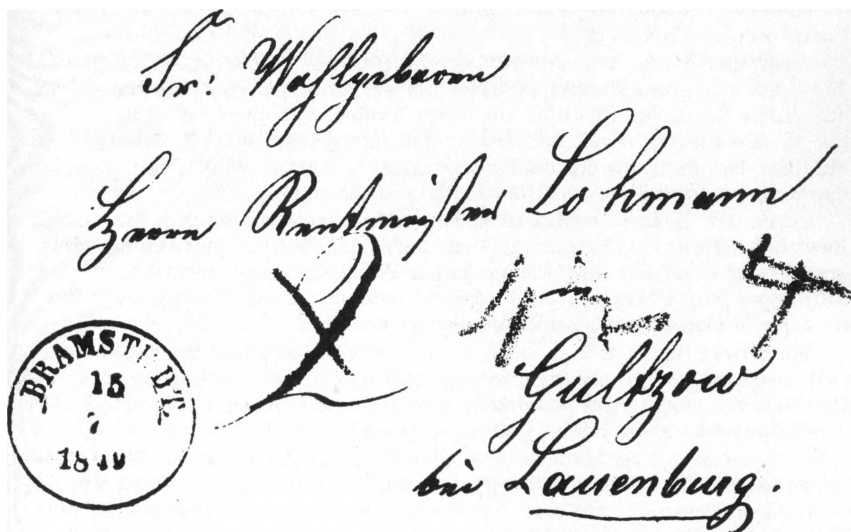 Sr: Wohlgeboren
Herrn Rentmeister Lohmann
Gultzow
bei Lauenburg.
BRAMSTEDT.
15
1849